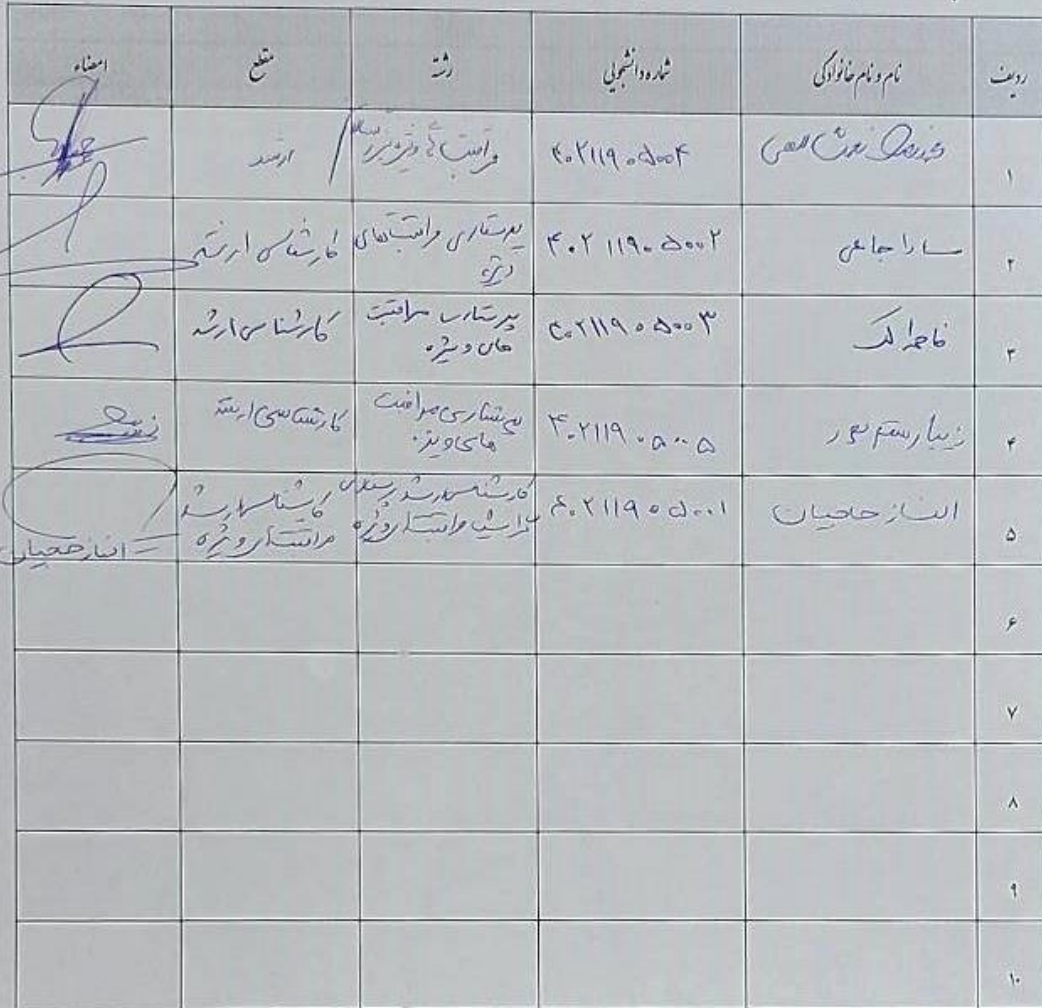 ردیف نام و نام خانوادگی شماره دانشجویی رشته مقطع امضاء
۱ ۴۰۲۱۱۹۰۵۰۰۴ مراقبت های ویژه پرستاری ارشد
۲ سارا جامعی ۴۰۲۱۱۹۰۵۰۰۲ پرستاری مراقبتهای کارشناسی ارشد
ویژه
۳ فاطمه لک ۴۰۲۱۱۹۰۵۰۰۳ پرستاری مراقبت کارشناسی ارشد
های ویژه
۴ زیبا رستم پور ۴۰۲۱۱۹۰۵۰۰۵ پرستاری مراقبت کارشناسی ارشد
های ویژه
۵ الناز حاجیان ۴۰۲۱۱۹۰۵۰۰۱ کارشناسی ارشد پرستاری کارشناسی ارشد
گرایش مراقبت های ویژه مراقبت های ویژه الناز حاجیان
۶
۷
۸
۹
۱۰